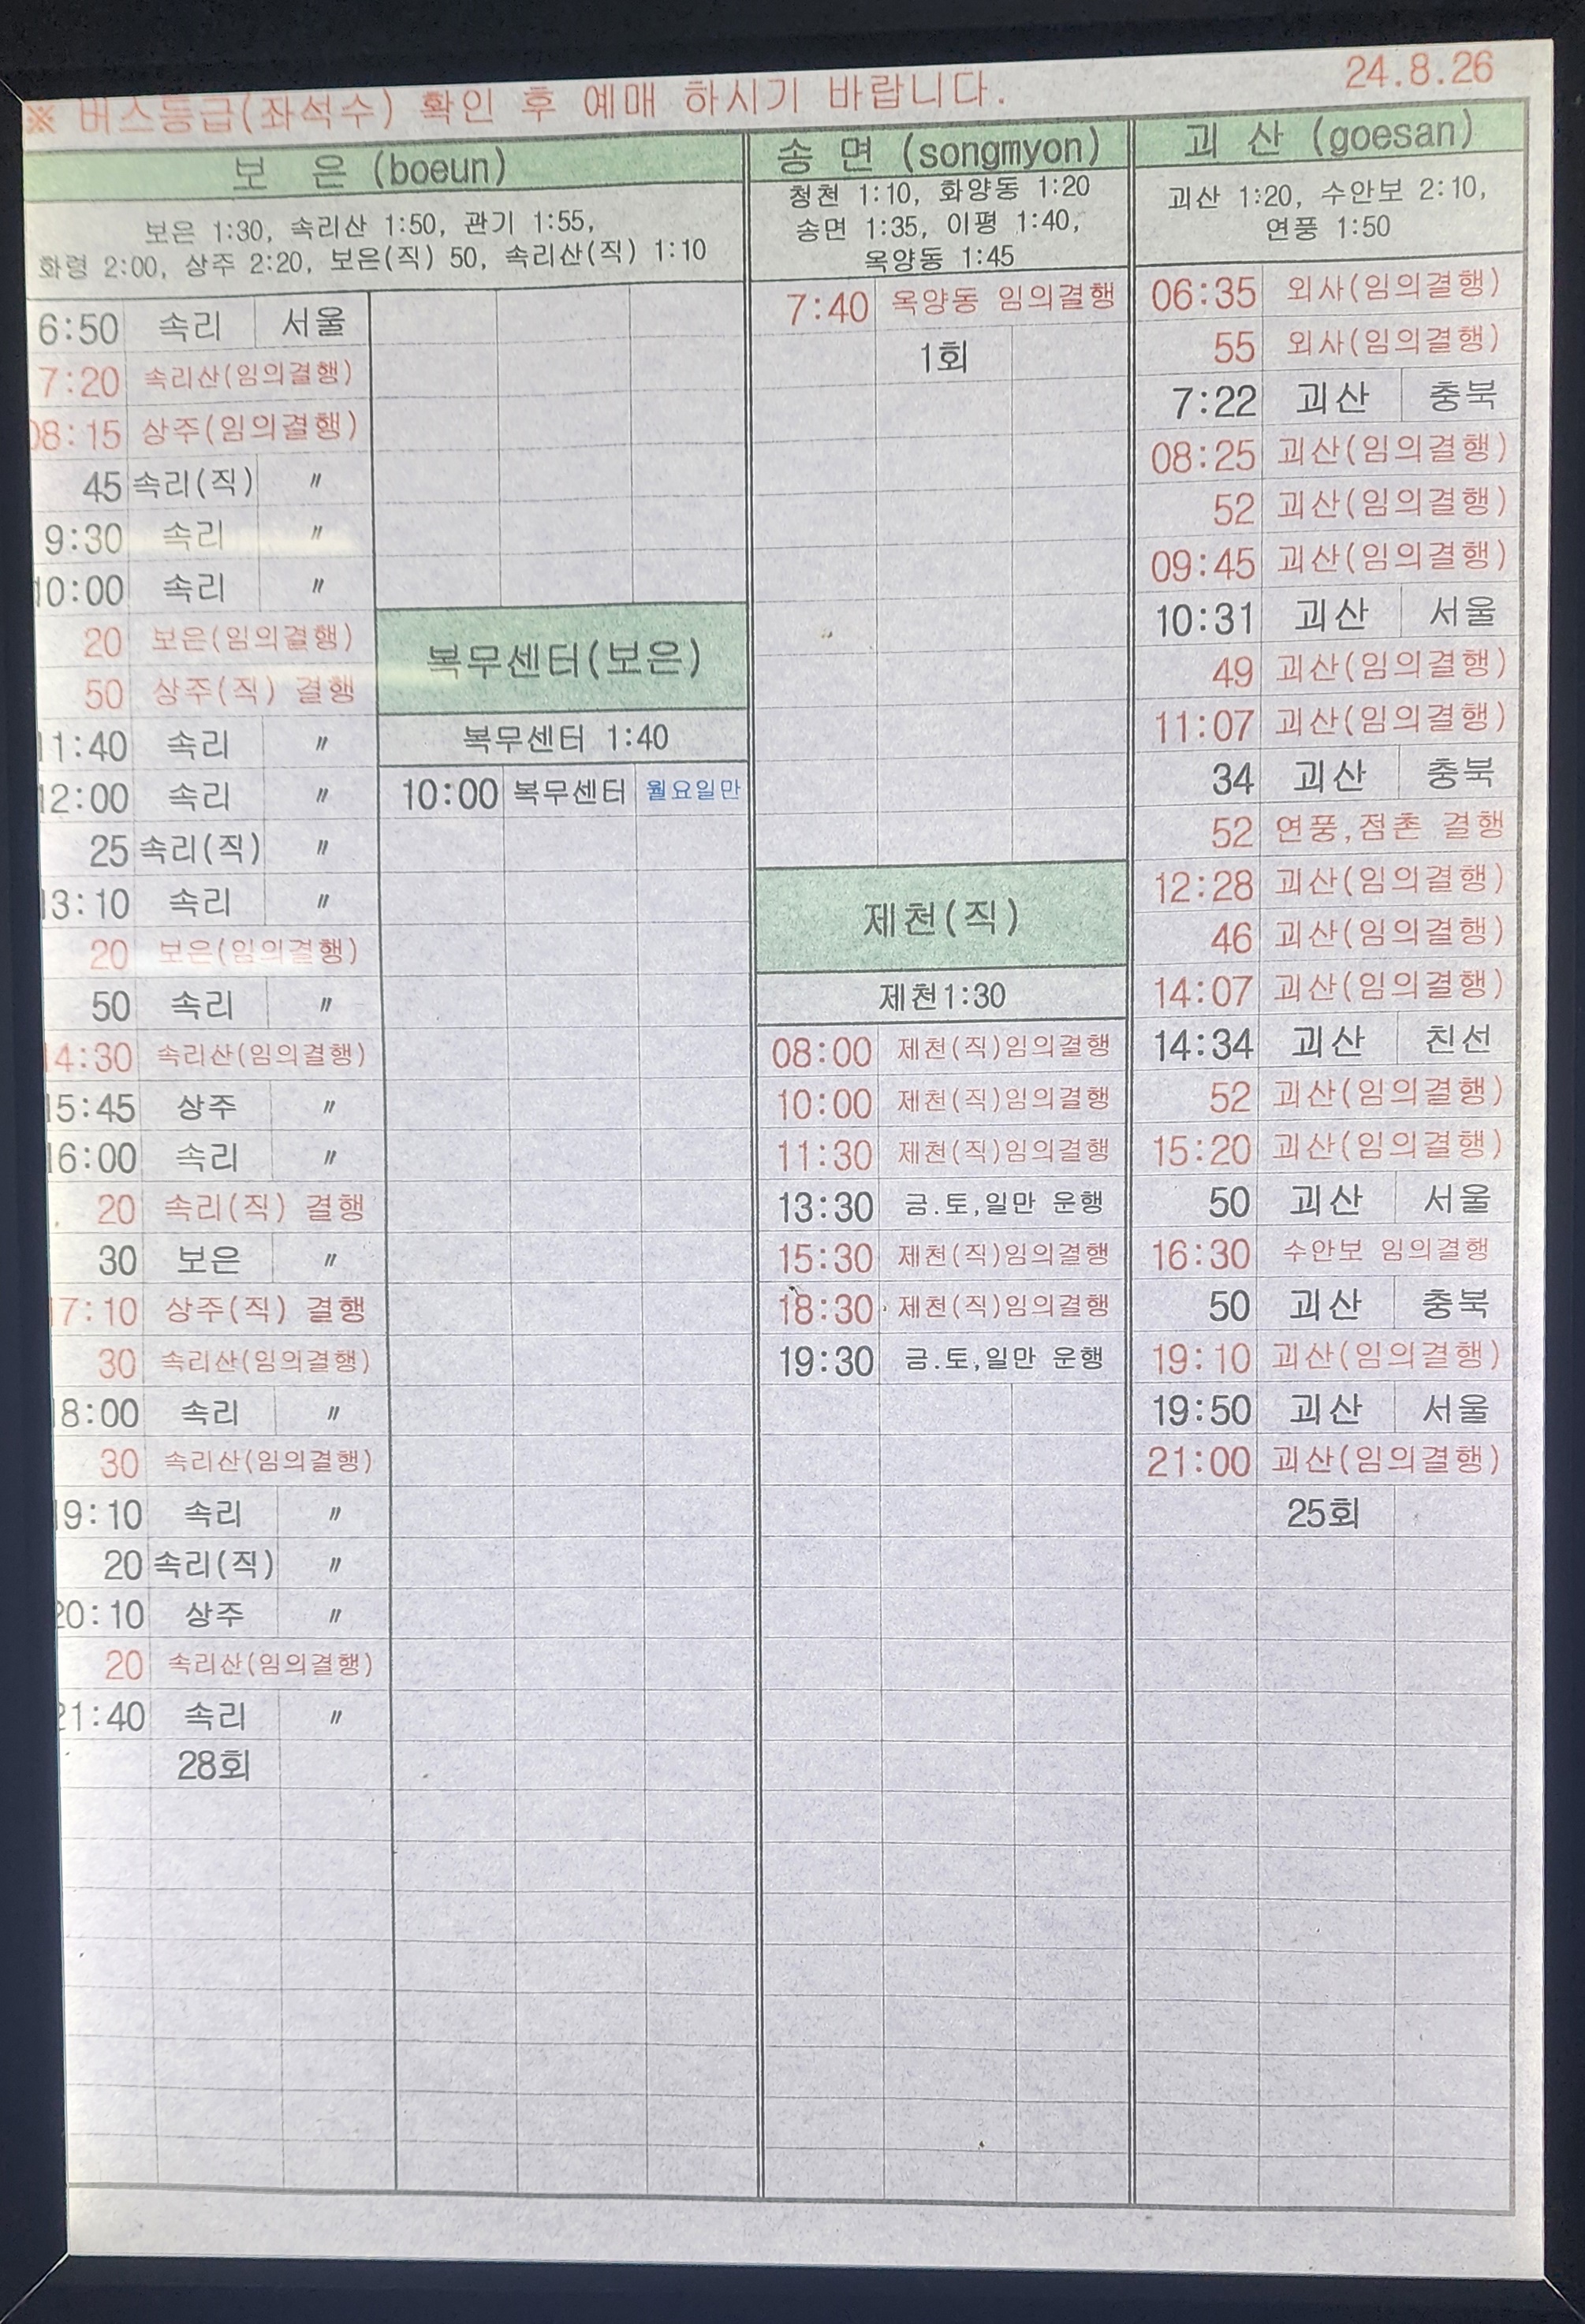 ※ 버스등급(좌석수) 확인 후 예매 하시기 바랍니다.
24.8.26
보 은 (boeun)
보은 1:30, 속리산 1:50, 관기 1:55,
화령 2:00, 상주 2:20, 보은(직) 50, 속리산(직) 1:10
6:50 속리 서울
7:20 속리산(임의결행)
08:15 상주(임의결행)
45 속리(직) 〃
9:30 속리 〃
10:00 속리 〃
20 보은(임의결행)
50 상주(직) 결행
11:40 속리 〃
12:00 속리 〃
25 속리(직) 〃
13:10 속리 〃
20 보은(임의결행)
50 속리 〃
14:30 속리산(임의결행)
15:45 상주 〃
16:00 속리 〃
20 속리(직) 결행
30 보은 〃
17:10 상주(직) 결행
30 속리산(임의결행)
18:00 속리 〃
30 속리산(임의결행)
19:10 속리 〃
20 속리(직) 〃
20:10 상주 〃
20 속리산(임의결행)
21:40 속리 〃
28회
복무센터(보은)
복무센터 1:40
10:00 복무센터 월요일만
송 면 (songmyon)
청천 1:10, 화양동 1:20
송면 1:35, 이평 1:40,
옥양동 1:45
7:40 옥양동 임의결행
1회
제천(직)
제천1:30
08:00 제천(직)임의결행
10:00 제천(직)임의결행
11:30 제천(직)임의결행
13:30 금.토,일만 운행
15:30 제천(직)임의결행
18:30 제천(직)임의결행
19:30 금.토,일만 운행
괴 산 (goesan)
괴산 1:20, 수안보 2:10,
연풍 1:50
06:35 외사(임의결행)
55 외사(임의결행)
7:22 괴산 충북
08:25 괴산(임의결행)
52 괴산(임의결행)
09:45 괴산(임의결행)
10:31 괴산 서울
49 괴산(임의결행)
11:07 괴산(임의결행)
34 괴산 충북
52 연풍,점촌 결행
12:28 괴산(임의결행)
46 괴산(임의결행)
14:07 괴산(임의결행)
14:34 괴산 친선
52 괴산(임의결행)
15:20 괴산(임의결행)
50 괴산 서울
16:30 수안보 임의결행
50 괴산 충북
19:10 괴산(임의결행)
19:50 괴산 서울
21:00 괴산(임의결행)
25회